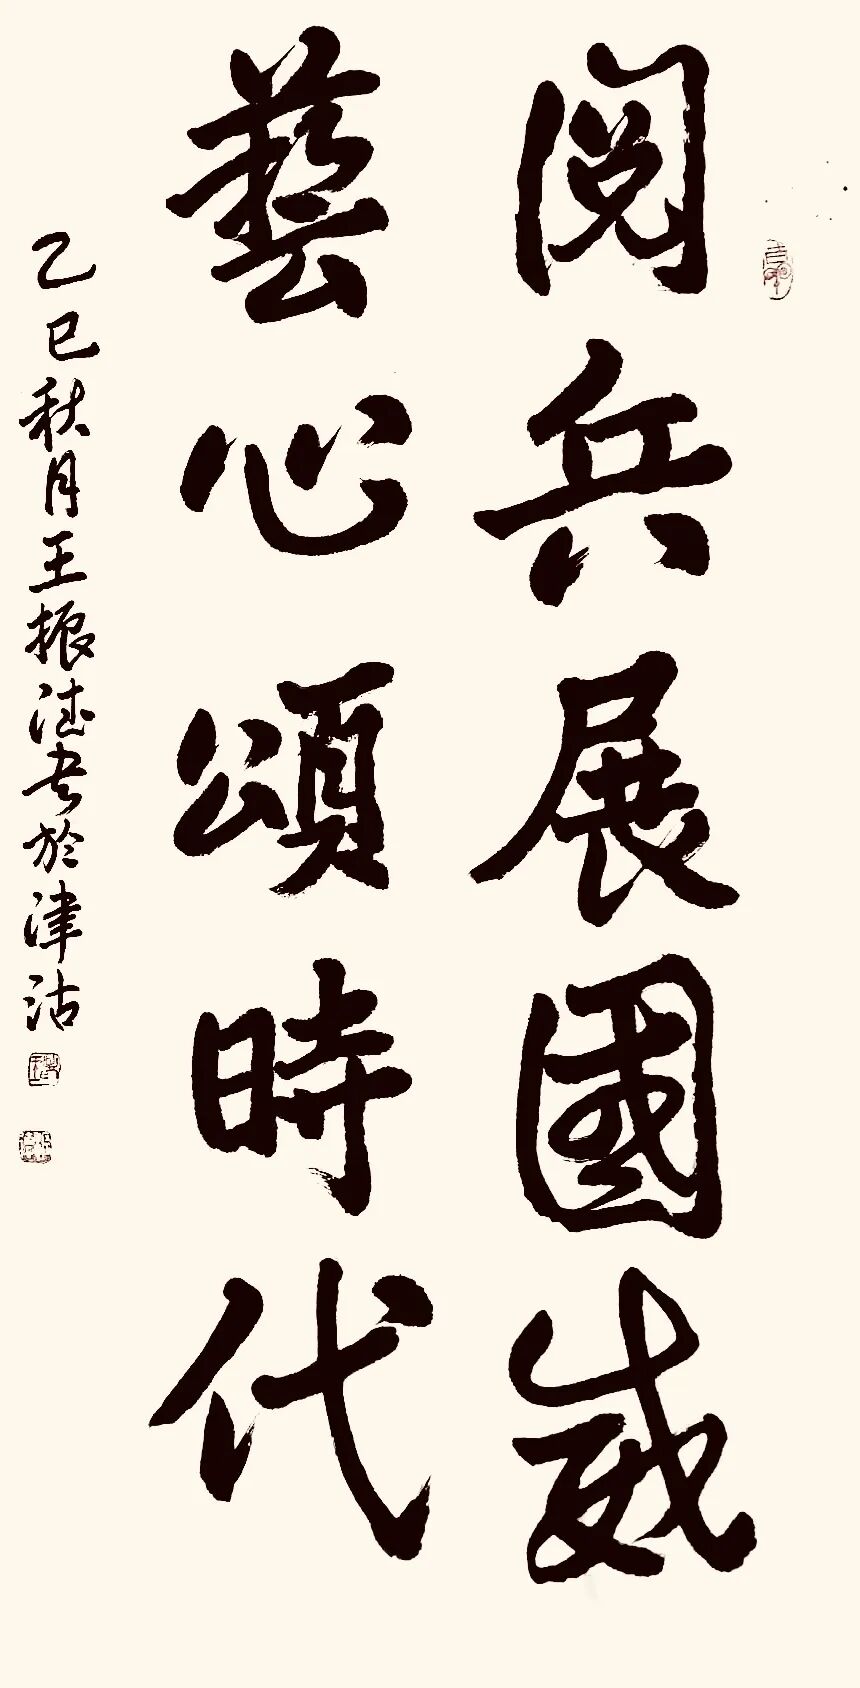 閲兵展國威
藝心頌時代
乙巳秋月王振德書於津沽